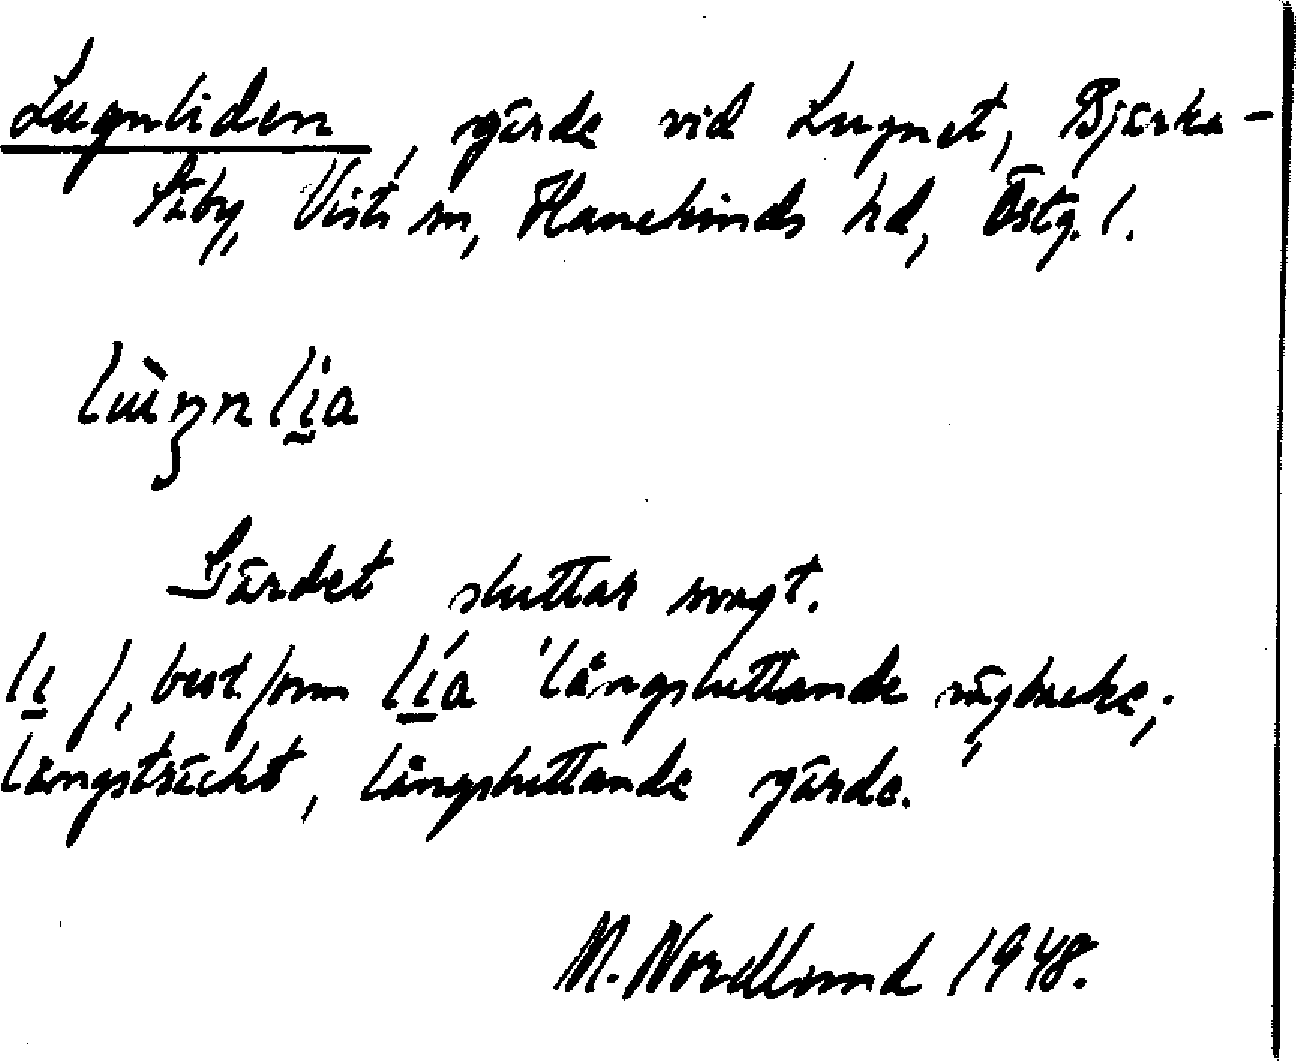 Lugnliden, gärde vid Lugnet, Bjärka-
Säby, Vists sn, Hanekinds hd, Östg. l.
lùŋnli̱a
Gärdet sluttar svagt.
li̱ f, best. form lí̱a 'långsluttande vägbacke;
långsträckt, långsluttande gärde.
M. Nordlund 1948.